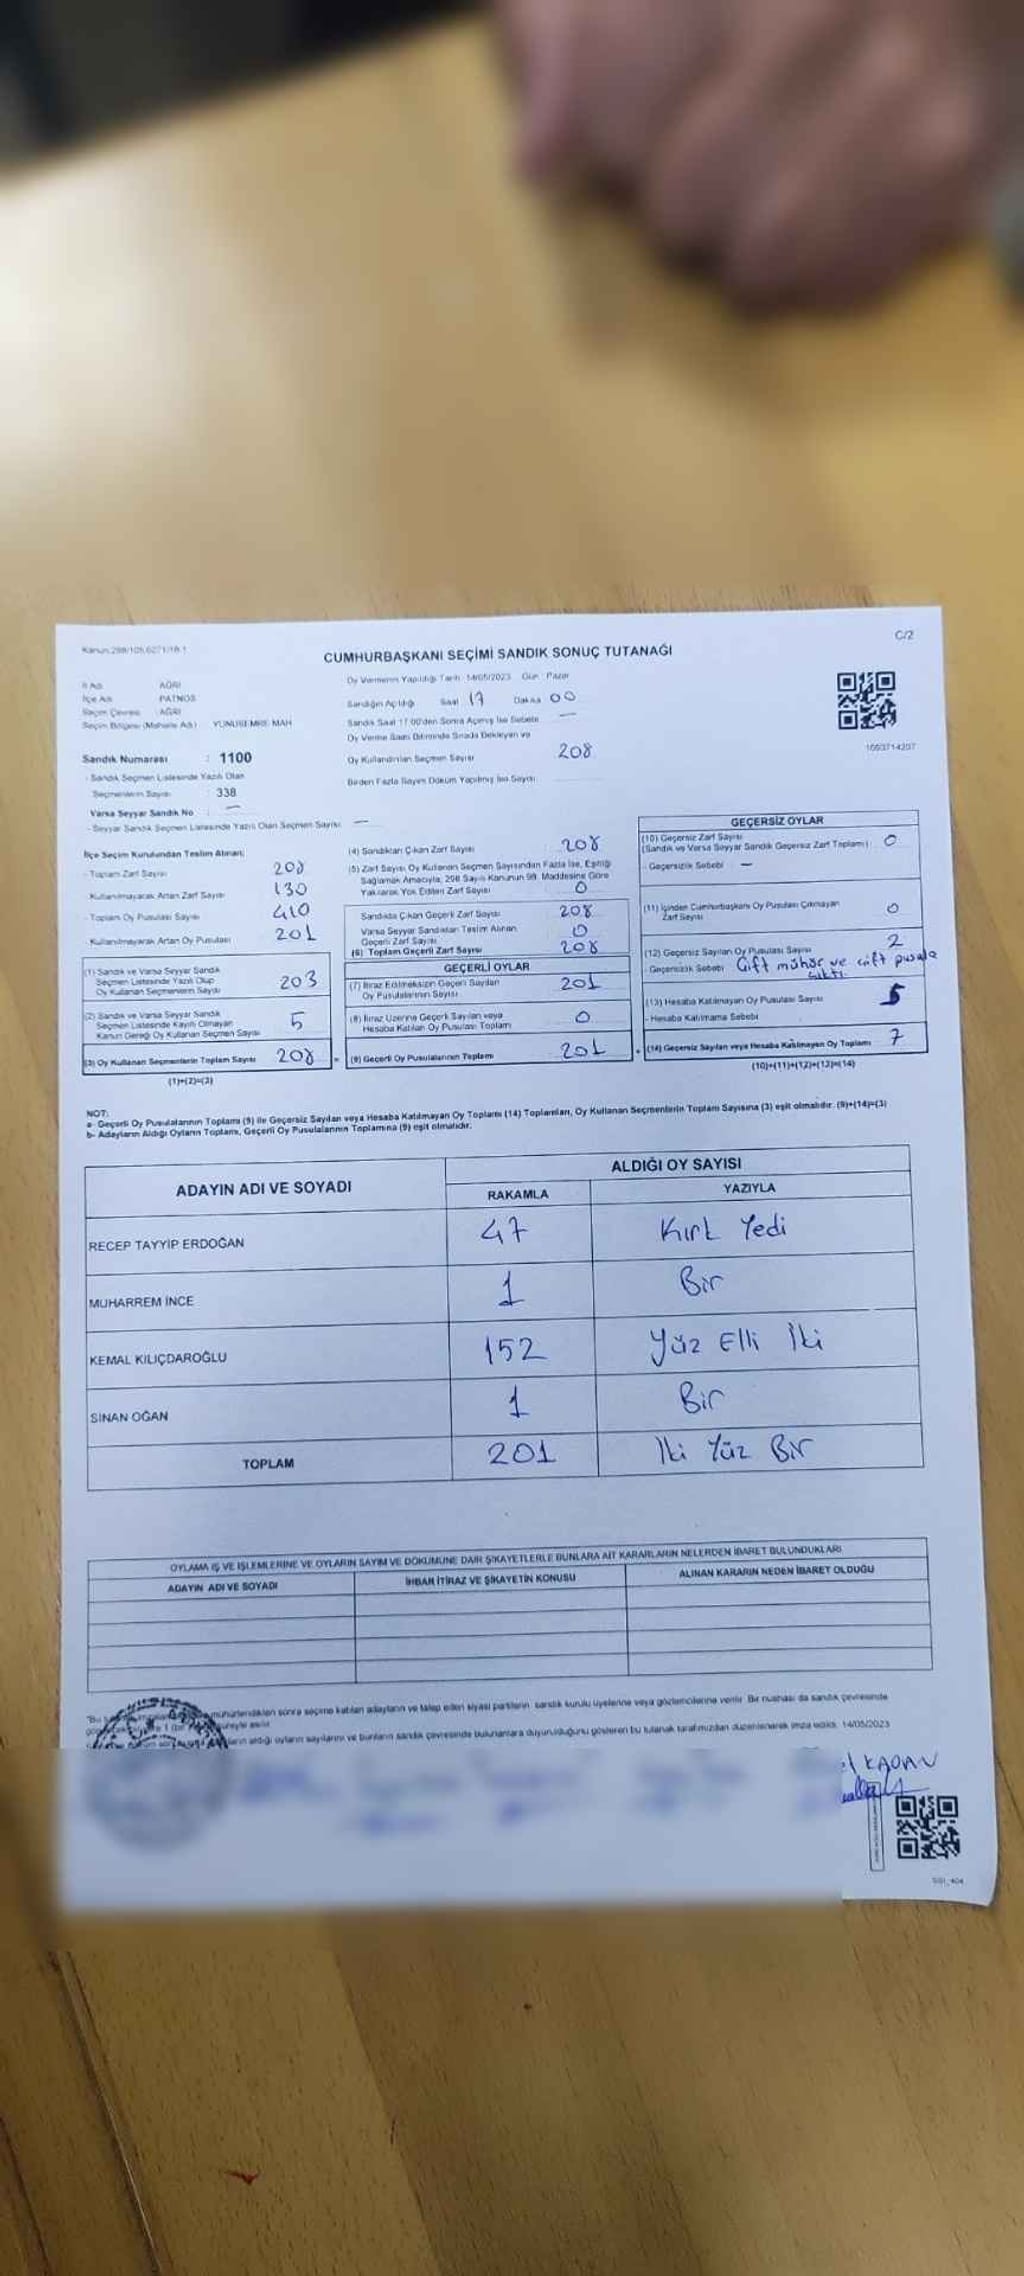 Kanun:298/105,6271/18.1
C/2
CUMHURBAŞKANI SEÇİMİ SANDIK SONUÇ TUTANAĞI
İl Adı AĞRI
İlçe Adı PATNOS
Seçim Çevresi AĞRI
Seçim Bölgesi (Mahalle Adı) YUNUS EMRE MAH
Sandık Numarası : 1100
- Sandık Seçmen Listesinde Yazılı Olan
Seçmenlerin Sayısı 338
Varsa Seyyar Sandık No : —
- Seyyar Sandık Seçmen Listesinde Yazılı Olan Seçmen Sayısı —
Oy Vermenin Yapıldığı Tarih 14/05/2023 Gün Pazar
Sandığın Açıldığı Saat 17 Dakika 00
Sandık Saat 17.00'den Sonra Açılmış İse Sebebi —
Oy Verme Saati Bitiminde Sırada Bekleyen ve
Oy Kullandırılan Seçmen Sayısı 208
Birden Fazla Sayım Döküm Yapılmış İse Sayısı
1003714207
İlçe Seçim Kurulundan Teslim Alınan;
- Toplam Zarf Sayısı 208
- Kullanılmayarak Artan Zarf Sayısı 130
- Toplam Oy Pusulası Sayısı 410
- Kullanılmayarak Artan Oy Pusulası 201
(1) Sandık ve Varsa Seyyar Sandık
Seçmen Listesinde Yazılı Olup
Oy Kullanan Seçmenlerin Sayısı 203
(2) Sandık ve Varsa Seyyar Sandık
Seçmen Listesinde Kayıtlı Olmayan
Kanun Gereği Oy Kullanan Seçmen Sayısı 5
(3) Oy Kullanan Seçmenlerin Toplam Sayısı 208
(1)+(2)=(3)
(4) Sandıktan Çıkan Zarf Sayısı 208
(5) Zarf Sayısı Oy Kullanan Seçmen Sayısından Fazla İse, Eşitliği
Sağlamak Amacıyla, 298 Sayılı Kanunun 98. Maddesine Göre
Yakılarak Yok Edilen Zarf Sayısı 0
Sandıkta Çıkan Geçerli Zarf Sayısı 208
Varsa Seyyar Sandıktan Teslim Alınan
Geçerli Zarf Sayısı 0
(6) Toplam Geçerli Zarf Sayısı 208
GEÇERLİ OYLAR
(7) İtiraz Edilmeksizin Geçerli Sayılan
Oy Pusulalarının Sayısı 201
(8) İtiraz Üzerine Geçerli Sayılan veya
Hesaba Katılan Oy Pusulası Toplamı 0
= (9) Geçerli Oy Pusulalarının Toplamı 201
GEÇERSİZ OYLAR
(10) Geçersiz Zarf Sayısı
(Sandık ve Varsa Seyyar Sandık Geçersiz Zarf Toplamı) 0
- Geçersizlik Sebebi —
(11) İçinden Cumhurbaşkanı Oy Pusulası Çıkmayan
Zarf Sayısı 0
(12) Geçersiz Sayılan Oy Pusulası Sayısı 2
- Geçersizlik Sebebi Çift mühür ve çift pusula
çıktı.
(13) Hesaba Katılmayan Oy Pusulası Sayısı 5
- Hesaba Katılmama Sebebi
+ (14) Geçersiz Sayılan veya Hesaba Katılmayan Oy Toplamı 7
(10)+(11)+(12)+(13)=(14)
NOT:
a- Geçerli Oy Pusulalarının Toplamı (9) ile Geçersiz Sayılan veya Hesaba Katılmayan Oy Toplamı (14) Toplamları, Oy Kullanan Seçmenlerin Toplam Sayısına (3) eşit olmalıdır. (9)+(14)=(3)
b- Adayların Aldığı Oyların Toplamı, Geçerli Oy Pusulalarının Toplamına (9) eşit olmalıdır.
ADAYIN ADI VE SOYADI
ALDIĞI OY SAYISI
RAKAMLA YAZIYLA
RECEP TAYYİP ERDOĞAN 47 Kırk Yedi
MUHARREM İNCE 1 Bir
KEMAL KILIÇDAROĞLU 152 Yüz Elli İki
SİNAN OĞAN 1 Bir
TOPLAM 201 İki Yüz Bir
OYLAMA İŞ VE İŞLEMLERİNE VE OYLARIN SAYIM VE DÖKÜMÜNE DAİR ŞİKAYETLERLE BUNLARA AİT KARARLARIN NELERDEN İBARET BULUNDUKLARI
ADAYIN ADI VE SOYADI İHBAR İTİRAZ VE ŞİKAYETİN KONUSU ALINAN KARARIN NEDEN İBARET OLDUĞU
mühürlendikten sonra seçime katılan adayların ve talep eden siyasi partilerin sandık kurulu üyelerine veya gözlemcilerine verilir. Bir nüshası da sandık çevresinde
aldığı oyların sayılarını ve bunların sandık çevresinde bulunanlara duyurulduğunu gösteren bu tutanak tarafımızdan düzenlenerek imza edildi. 14/05/2023
KADAN